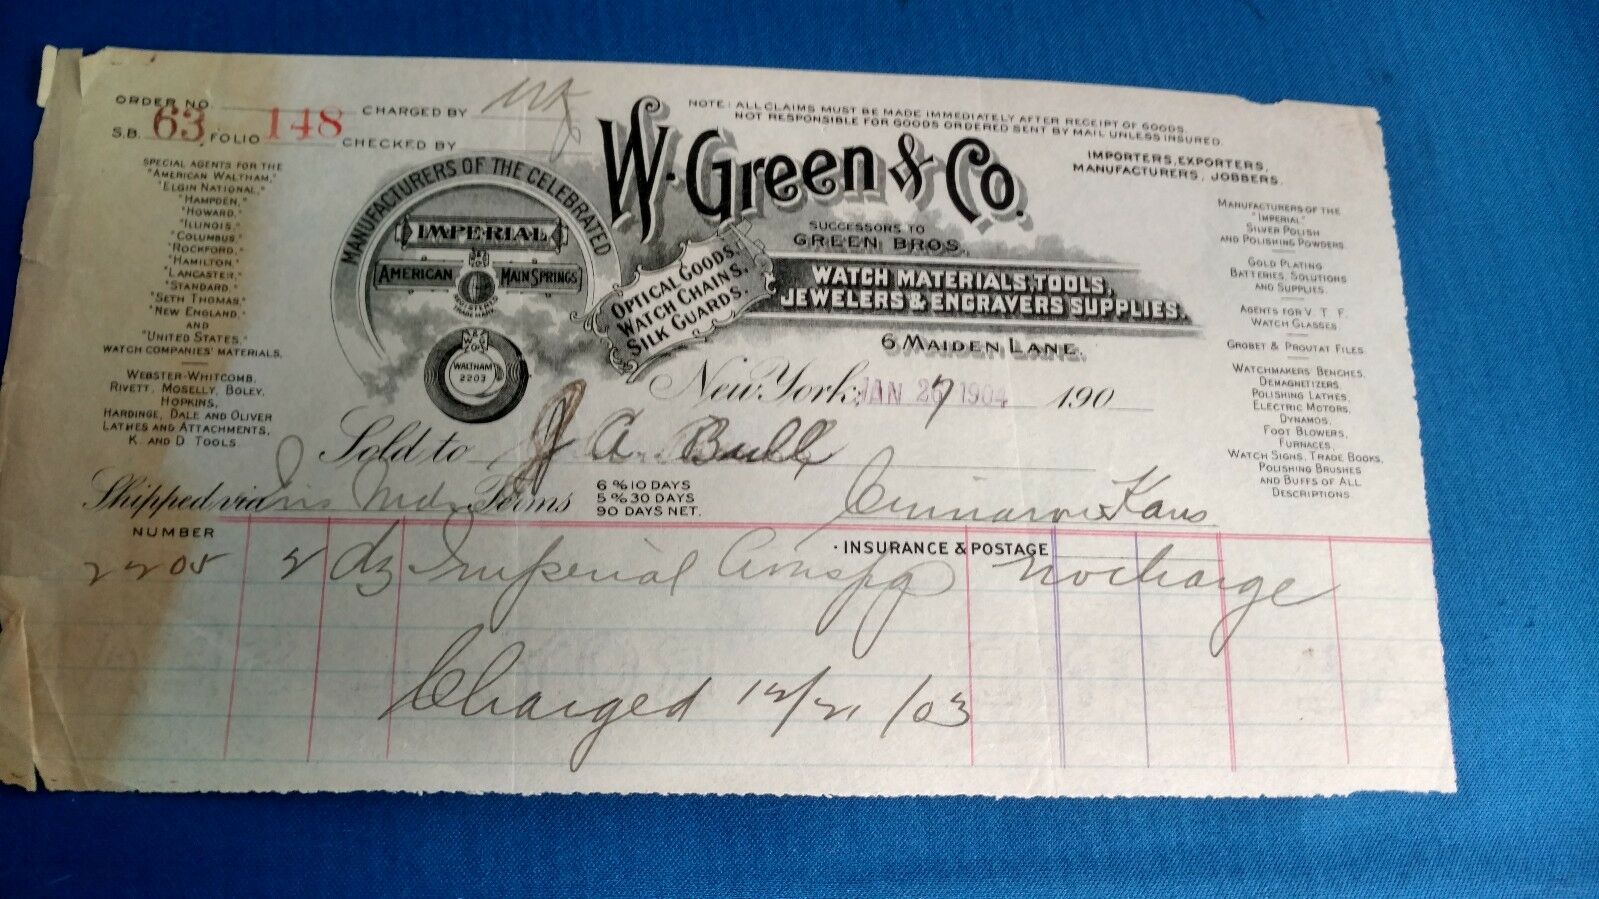 ORDER NO.
S.B. 63 FOLIO 148
CHARGED BY
CHECKED BY
NOTE: ALL CLAIMS MUST BE MADE IMMEDIATELY AFTER RECEIPT OF GOODS.
NOT RESPONSIBLE FOR GOODS ORDERED SENT BY MAIL UNLESS INSURED.
W. Green & Co.
IMPORTERS, EXPORTERS,
MANUFACTURERS, JOBBERS.
SUCCESSORS TO
GREEN BROS.
WATCH MATERIALS, TOOLS,
JEWELERS & ENGRAVERS SUPPLIES.
6 MAIDEN LANE.
SPECIAL AGENTS FOR THE
"AMERICAN WALTHAM,"
"ELGIN NATIONAL,"
"HAMPDEN,"
"HOWARD,"
"ILLINOIS,"
"COLUMBUS,"
"ROCKFORD,"
"HAMILTON,"
"LANCASTER,"
"STANDARD,"
"SETH THOMAS,"
"NEW ENGLAND,"
AND
"UNITED STATES,"
WATCH COMPANIES' MATERIALS.
WEBSTER-WHITCOMB,
RIVETT, MOSELLY, BOLEY,
HOPKINS,
HARDINGE, DALE AND OLIVER
LATHES AND ATTACHMENTS,
K. AND D TOOLS.
MANUFACTURERS OF THE CELEBRATED
IMPERIAL
AMERICAN MAIN SPRINGS
W & G Co.
REGISTERED
TRADE MARK
W & G Co.
WALTHAM
2203
OPTICAL GOODS,
WATCH CHAINS,
SILK GUARDS.
MANUFACTURERS OF THE
"IMPERIAL"
SILVER POLISH
AND POLISHING POWDERS.
GOLD PLATING
BATTERIES, SOLUTIONS
AND SUPPLIES.
AGENTS FOR V. T. F.
WATCH GLASSES
GROBET & PROUTAT FILES
WATCHMAKERS BENCHES,
DEMAGNETIZERS,
POLISHING LATHES,
ELECTRIC MOTORS,
DYNAMOS,
FOOT BLOWERS,
FURNACES,
WATCH SIGNS, TRADE BOOKS,
POLISHING BRUSHES
AND BUFFS OF ALL
DESCRIPTIONS.
New York, JAN 27 1904 190
Sold to J A Bull
Shipped via Terms
6 % 10 DAYS
5 % 30 DAYS
90 DAYS NET.
Cimarron Kans
NUMBER
INSURANCE & POSTAGE
2205 2 dz Imperial no charge
Charged 12/21/03